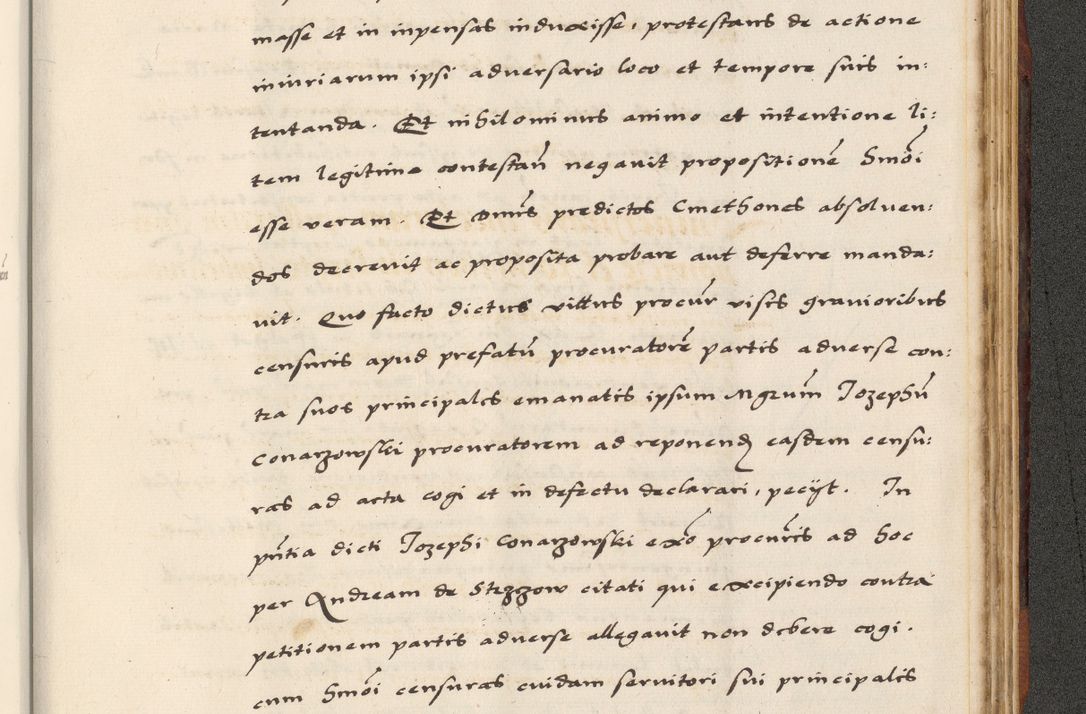 masse et in inpensas induxisse, protestans de actione
iniuriarum ipsi adversario loco et tempore suis in:
tentanda. Et nihilominus animo et intentione li:
tem legitime contestan̄ negavit propositionē Smōi
esse veram. Et omēs predictos Cmethones absolven:
dos decrevit ac proposita probare aut deferre manda:
vit. Quo facto dictus villus procur̄ visis gravioribus
censuris apud prefatū procuratorē partis adverse con:
tra suos principales emanatis ipsum Mgrum̄ Jozephū
Conarzowski procuratorem ad reponend̄ easdem censu:
ras ad acta cogi et in defectu declarari, pecijt. In
pn̄tia dicti Jozephi Conarzowski exō procur̄is ad hoc
per Andream de Strzzow citati qui excipiendo contra
petitionem partis adverse allegavit non debere cogi.
cum Smōi censuras cuidam servitori sui principalis